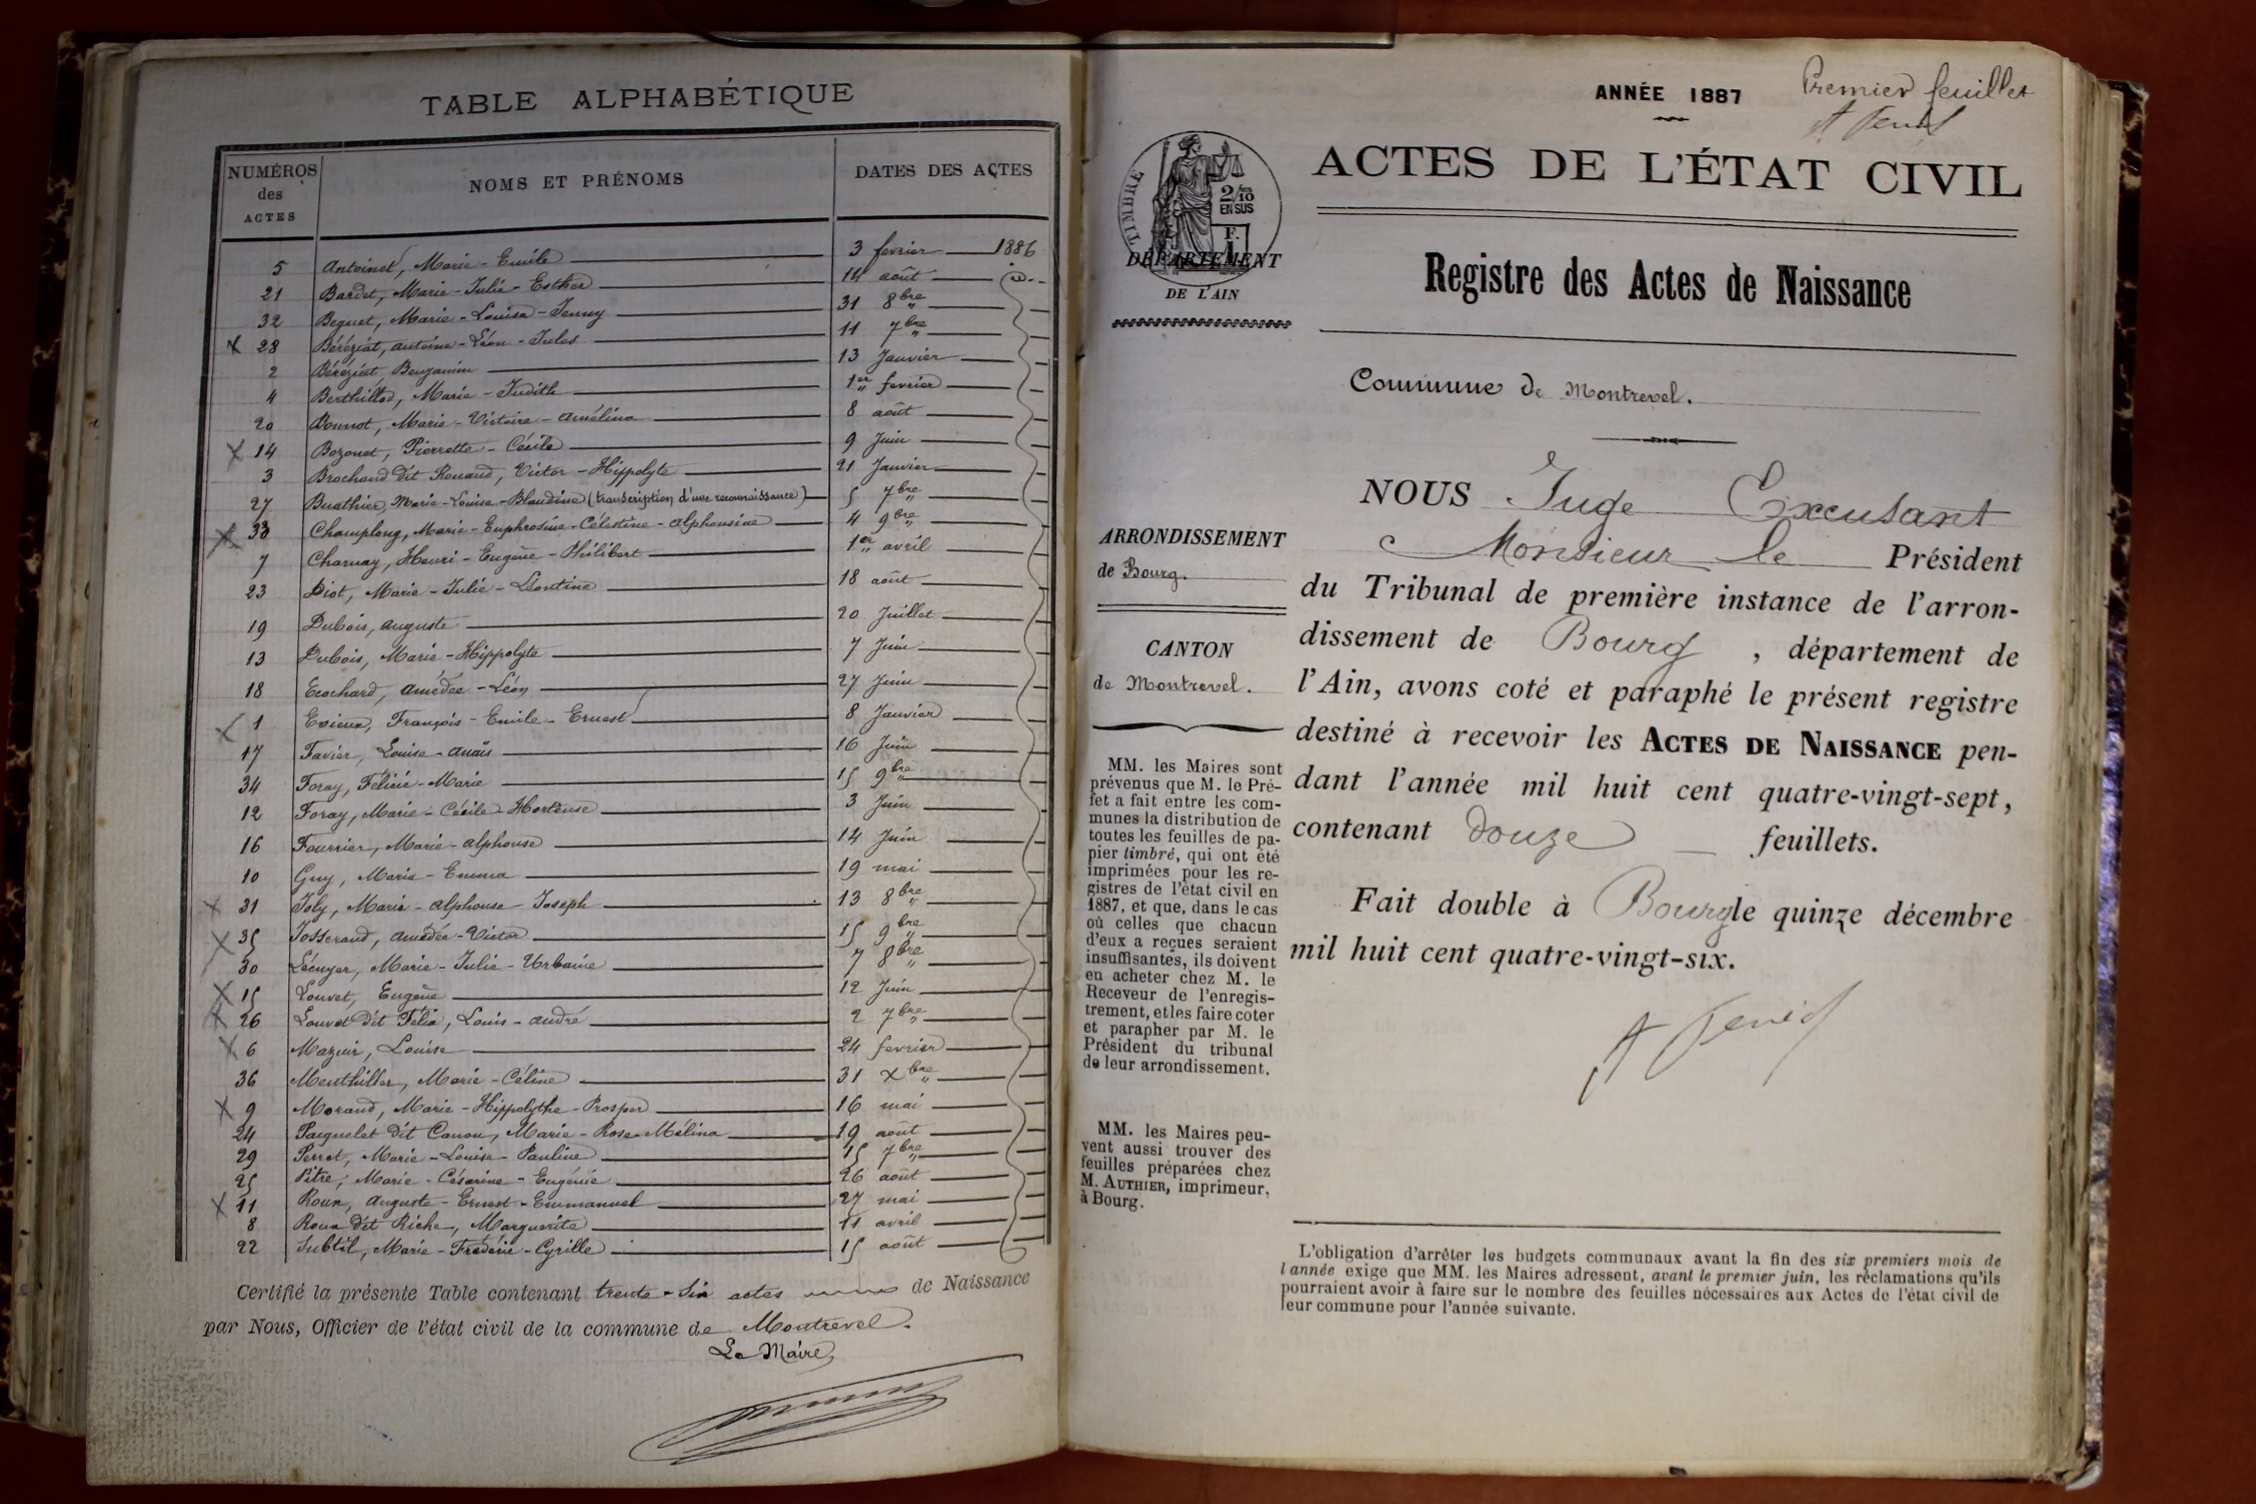 TABLE ALPHABÉTIQUE
NUMÉROS des ACTES NOMS ET PRÉNOMS DATES DES ACTES
5 Antoinet, Marie-Emile 3 fevrier 1886
21 Bardet, Marie-Julie-Esther 14 août id.
32 Beguet, Marie-Louisa-Jenny 31 8bre
x 28 Béréziat, Antoine-Léon-Jules 11 7bre
2 Béréziat Benjamin 13 Janvier
4 Berthillod, Marie-Judith 1er fevrier
20 Bonnot, Marie-Victoire-Amélina 8 août
x 14 Bozonet, Pierrette-Cécile 9 Juin
3 Brochand dit Renaud, Victor-Hippolyte 21 Janvier
27 Buathier, Marie-Louise-Blandine (transcription d'une reconnaissance) 5 7bre
x 33 Champlong, Marie-Euphrosine-Célestine-Alphonsine 4 9bre
7 Charnay, Henri-Eugène-Philibert 1er avril
23 Diot, Marie-Julie-Léontine 18 août
19 Dubois, Auguste 20 Juillet
13 Dubois, Marie-Hippolyte 7 Juin
18 Ecochard, Amédée-Léon 27 Juin
x 1 Evieux, François-Emile-Ernest 8 Janvier
17 Favier, Louise-Anaïs 16 Juin
34 Foray, Féline-Marie 15 9bre
12 Foray, Marie-Cécile-Hortense 3 Juin
16 Fourrier, Marie-Alphonse 14 Juin
10 Guy, Marie-Emma 19 mai
x 31 Joly, Marie-Alphonse-Joseph 13 8bre
x 35 Josserand, Amédée-Victor 15 9bre
30 Lécuyer, Marie-Julie-Urbanie 7 8bre
x 15 Louvet, Eugène 12 Juin
x 26 Louvet dit Félix, Louis-André 2 7bre
x 6 Mazuir, Louise 24 fevrier
36 Menthiller, Marie-Céline 31 Xbre
x 9 Morand, Marie-Hippolythe-Prosper 16 mai
24 Paquelet dit Canon, Marie-Rose-Mélina 19 août
29 Perret, Marie-Louise-Pauline 15 7bre
25 Pitre, Marie-Césarine-Eugénie 26 août
x 11 Roux, Auguste-Ernest-Emmanuel 27 mai
8 Roux dit Riche, Marguerite 11 avril
22 Subtil, Marie-Frédéric-Cyrille 15 août
Certifié la présente Table contenant trente-six actes de Naissance
par Nous, Officier de l'état civil de la commune de Montrevel.
Le Maire,
ANNÉE 1887
Premier feuillet
TIMBRE
2/10 EN SUS
F.
1
DÉPARTEMENT
DE L'AIN
ACTES DE L'ÉTAT CIVIL
Registre des Actes de Naissance
Commune de Montrevel.
ARRONDISSEMENT
de Bourg.
CANTON
de Montrevel.
MM. les Maires sont
prévenus que M. le Pré-
fet a fait entre les com-
munes la distribution de
toutes les feuilles de pa-
pier timbré, qui ont été
imprimées pour les re-
gistres de l'état civil en
1887, et que, dans le cas
où celles que chacun
d'eux a reçues seraient
insuffisantes, ils doivent
en acheter chez M. le
Receveur de l'enregis-
trement, et les faire coter
et parapher par M. le
Président du tribunal
de leur arrondissement.
MM. les Maires peu-
vent aussi trouver des
feuilles préparées chez
M. AUTHIER, imprimeur,
à Bourg.
NOUS Juge Excusant
Monsieur le Président
du Tribunal de première instance de l'arron-
dissement de Bourg, département de
l'Ain, avons coté et paraphé le présent registre
destiné à recevoir les ACTES DE NAISSANCE pen-
dant l'année mil huit cent quatre-vingt-sept,
contenant douze feuillets.
Fait double à Bourg le quinze décembre
mil huit cent quatre-vingt-six.
L'obligation d'arrêter les budgets communaux avant la fin des six premiers mois de
l'année exige que MM. les Maires adressent, avant le premier juin, les réclamations qu'ils
pourraient avoir à faire sur le nombre des feuilles nécessaires aux Actes de l'état civil de
leur commune pour l'année suivante.